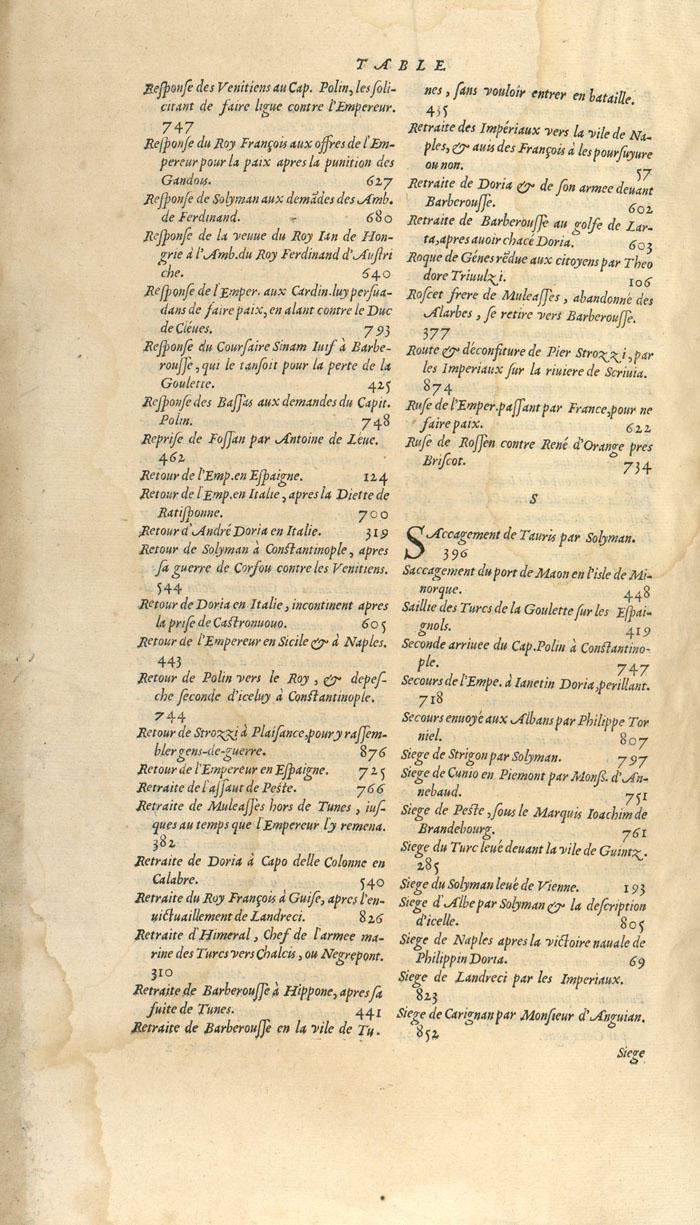 TABLE
Reſponſe des Venitiens au Cap. Polin, les ſoli-
citant de faire ligue contre l'Empereur.
747
Reſponſe du Roy François aux offres de l'Em-
pereur pour la paix apres la punition des
Gandois. 627
Reſponſe de Solyman aux demādes des Amb.
de Ferdinand. 680
Reſponſe de la veuue du Roy Ian de Hon-
grie à l'Amb. du Roy Ferdinand d'Auſtri
che. 640
Reſponſe de l'Emper. aux Cardin. luy perſua-
dans de faire paix, en alant contre le Duc
de Cléues. 793
Reſponſe du Courſaire Sinam Iuif à Barbe-
rouſſe, qui le tanſoit pour la perte de la
Goulette. 425
Reſponſe des Baſſas aux demandes du Capit.
Polin. 748
Repriſe de Foſſan par Antoine de Léue.
462
Retour de l'Emp. en Eſpaigne. 124
Retour de l'Emp. en Italie, apres la Diette de
Ratiſponne. 700
Retour d'André Doria en Italie. 319
Retour de Solyman à Conſtantinople, apres
ſa guerre de Corfou contre les Venitiens.
544
Retour de Doria en Italie, incontinent apres
la priſe de Caſtronuouo. 605
Retour de l'Empereur en Sicile & à Naples.
443
Retour de Polin vers le Roy, & depeſ-
che ſeconde d'iceluy à Conſtantinople.
744
Retour de Strozzi à Plaiſance, pour y raſſem-
bler gens-de-guerre. 876
Retour de l'Empereur en Eſpaigne. 725
Retraite de l'aſſaut de Peſte. 766
Retraite de Muleaſſes hors de Tunes, iuſ-
ques au temps que l'Empereur l'y remena.
382
Retraite de Doria à Capo delle Colonne en
Calabre. 540
Retraite du Roy François à Guiſe, apres l'en-
uictuaillement de Landreci. 826
Retraite d'Himeral, Chef de l'armee ma-
rine des Turcs vers Chalcis, ou Negrepont.
310
Retraite de Barberouſſe à Hippone, apres ſa
fuite de Tunes. 441
Retraite de Barberouſſe en la vile de Tu-
nes, ſans vouloir entrer en bataille.
435
Retraite des Impériaux vers la vile de Na-
ples, & auis des François à les pourſuyure
ou non. 57
Retraite de Doria & de ſon armee deuant
Barberouſſe. 602
Retraite de Barberouſſe au golfe de Lar-
ta, apres auoir chacé Doria. 603
Roque de Génes rēdue aux citoyens par Theo
dore Triuulzi. 106
Roſcet frere de Muleaſſes, abandonné des
Alarbes, ſe retire vers Barberouſſe.
377
Route & déconfiture de Pier Strozzi, par
les Imperiaux ſur la riuiere de Scriuia.
874
Ruſe de l'Emper. paſſant par France, pour ne
faire paix. 622
Ruſe de Roſſen contre René d'Orange pres
Briſcot. 734
S
SAccagement de Tauris par Solyman.
396
Saccagement du port de Maon en l'iſle de Mi-
norque. 448
Saillie des Turcs de la Goulette ſur les Eſpai-
gnols. 419
Seconde arriuee du Cap. Polin à Conſtantino-
ple. 747
Secours de l'Empe. à Ianetin Doria, perillant.
718
Secours enuoyé aux Albans par Philippe Tor
niel. 807
Siege de Strigon par Solyman. 797
Siege de Cunio en Piemont par Monſ. d'An-
nebaud. 751
Siege de Peſte, ſous le Marquis Ioachim de
Brandebourg. 761
Siege du Turc leué deuant la vile de Guintz.
285
Siege du Solyman leué de Vienne. 193
Siege d'Albe par Solyman & la deſcription
d'icelle. 805
Siege de Naples apres la victoire nauale de
Philippin Doria. 69
Siege de Landreci par les Imperiaux.
823
Siege de Carignan par Monſieur d'Anguian.
852
Siege